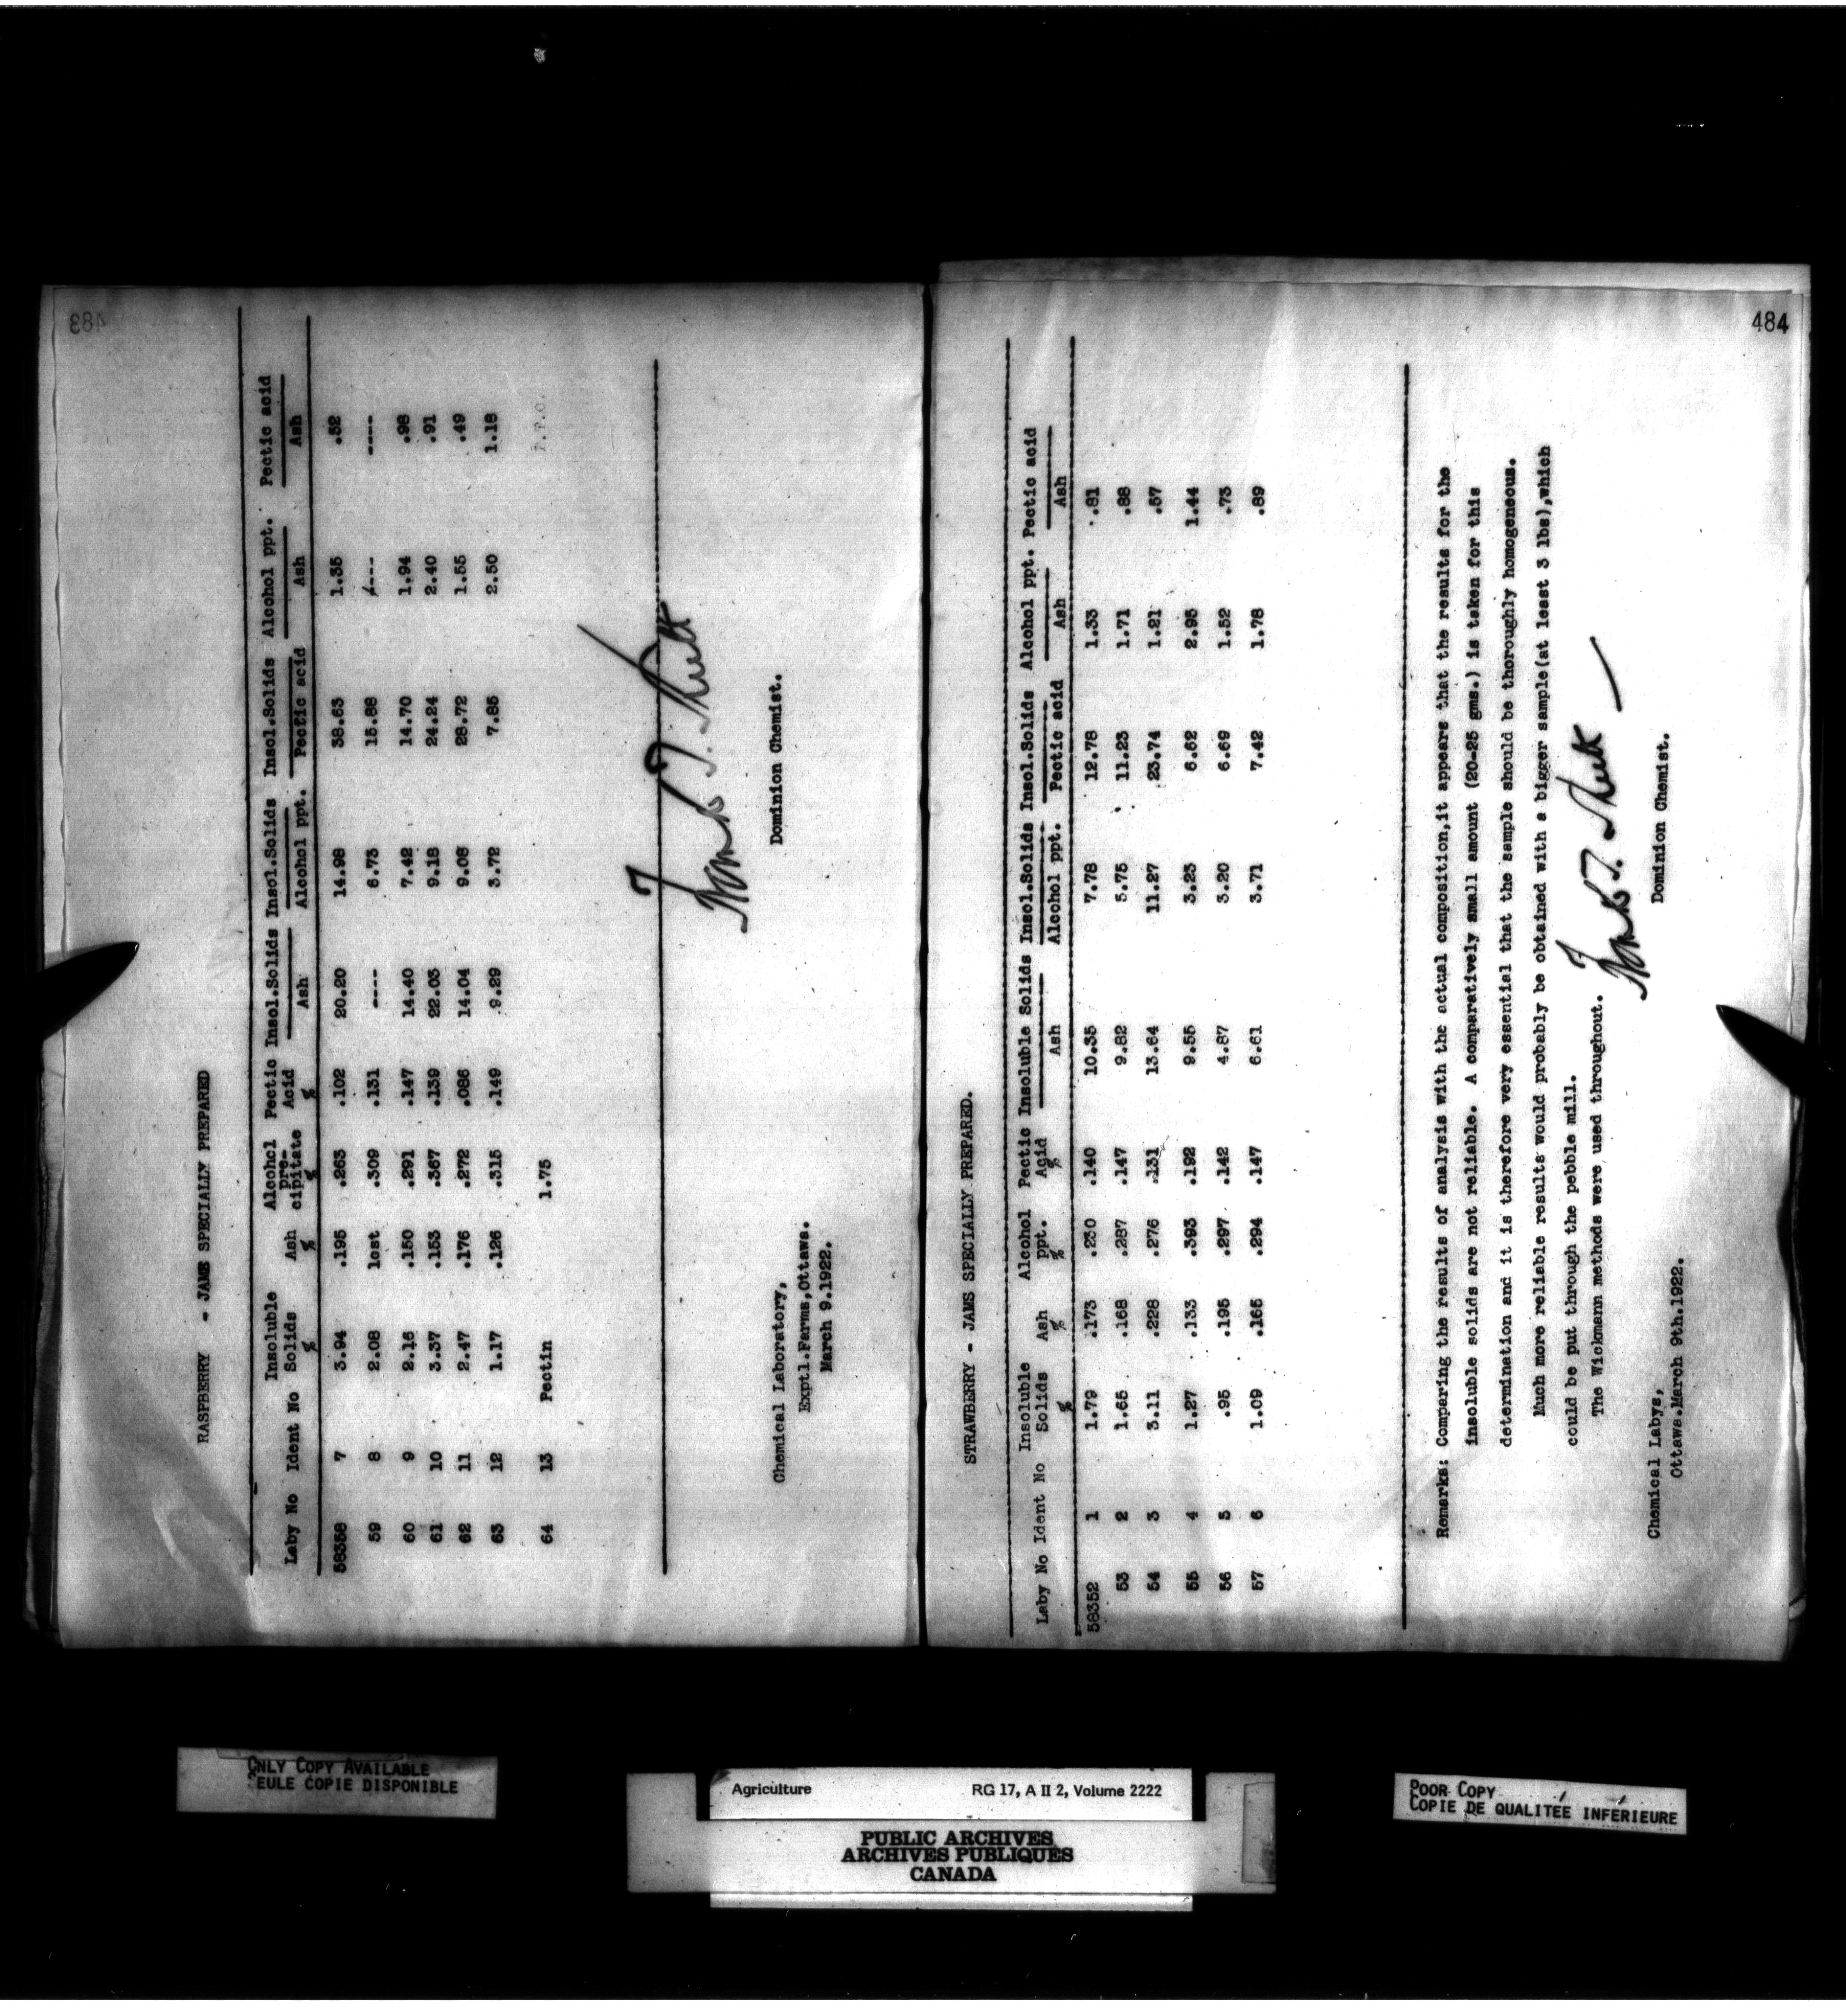 483
RASPBERRY - JAMS SPECIALLY PREPARED
Laby No Ident No Insoluble Solids % Ash % Alcohol pre-cipitate % Pectic Acid % Insol.Solids Ash Insol.Solids Alcohol ppt. Insol.Solids Pectic acid Alcohol ppt. Ash Pectic acid Ash
58358 7 3.94 .195 .263 .102 20.20 14.98 38.63 1.35 .52
59 8 2.08 lost .309 .131 ---- 6.73 15.88 ---- ----
60 9 2.16 .150 .291 .147 14.40 7.42 14.70 1.94 .98
61 10 3.37 .153 .367 .139 22.03 9.18 24.24 2.40 .91
62 11 2.47 .176 .272 .086 14.04 9.08 28.72 1.55 .49
63 12 1.17 .126 .315 .149 9.29 3.72 7.85 2.50 1.18
64 13 Pectin 1.75
Chemical Laboratory,
Exptl.Farms,Ottawa.
March 9.1922.
Frank T. Shutt
Dominion Chemist.
484
STRAWBERRY - JAMS SPECIALLY PREPARED.
Laby No Ident No Insoluble Solids % Ash % Alcohol ppt. % Pectic Acid % Insoluble Solids Ash Insol.Solids Alcohol ppt. Insol.Solids Pectic acid Alcohol ppt. Ash Pectic acid Ash
58352 1 1.79 .173 .230 .140 10.35 7.78 12.78 1.33 .81
53 2 1.65 .168 .287 .147 9.82 5.75 11.23 1.71 .88
54 3 3.11 .228 .276 .131 13.64 11.27 23.74 1.21 .57
55 4 1.27 .133 .393 .192 9.55 3.23 6.62 2.95 1.44
56 5 .95 .195 .297 .142 4.87 3.20 6.69 1.52 .73
57 6 1.09 .165 .294 .147 6.61 3.71 7.42 1.78 .89
Remarks: Comparing the results of analysis with the actual composition,it appears that the results for the
insoluble solids are not reliable. A comparatively small amount (20-25 gms.) is taken for this
determination and it is therefore very essential that the sample should be thoroughly homogeneous.
Much more reliable results would probably be obtained with a bigger sample(at least 3 lbs),which
could be put through the pebble mill.
The Wickmann methods were used throughout.
Frank T. Shutt
Dominion Chemist.
Chemical Labys,
Ottawa.March 9th.1922.
ONLY COPY AVAILABLE
SEULE COPIE DISPONIBLE
Agriculture RG 17, A II 2, Volume 2222
PUBLIC ARCHIVES
ARCHIVES PUBLIQUES
CANADA
POOR COPY
COPIE DE QUALITEE INFERIEURE